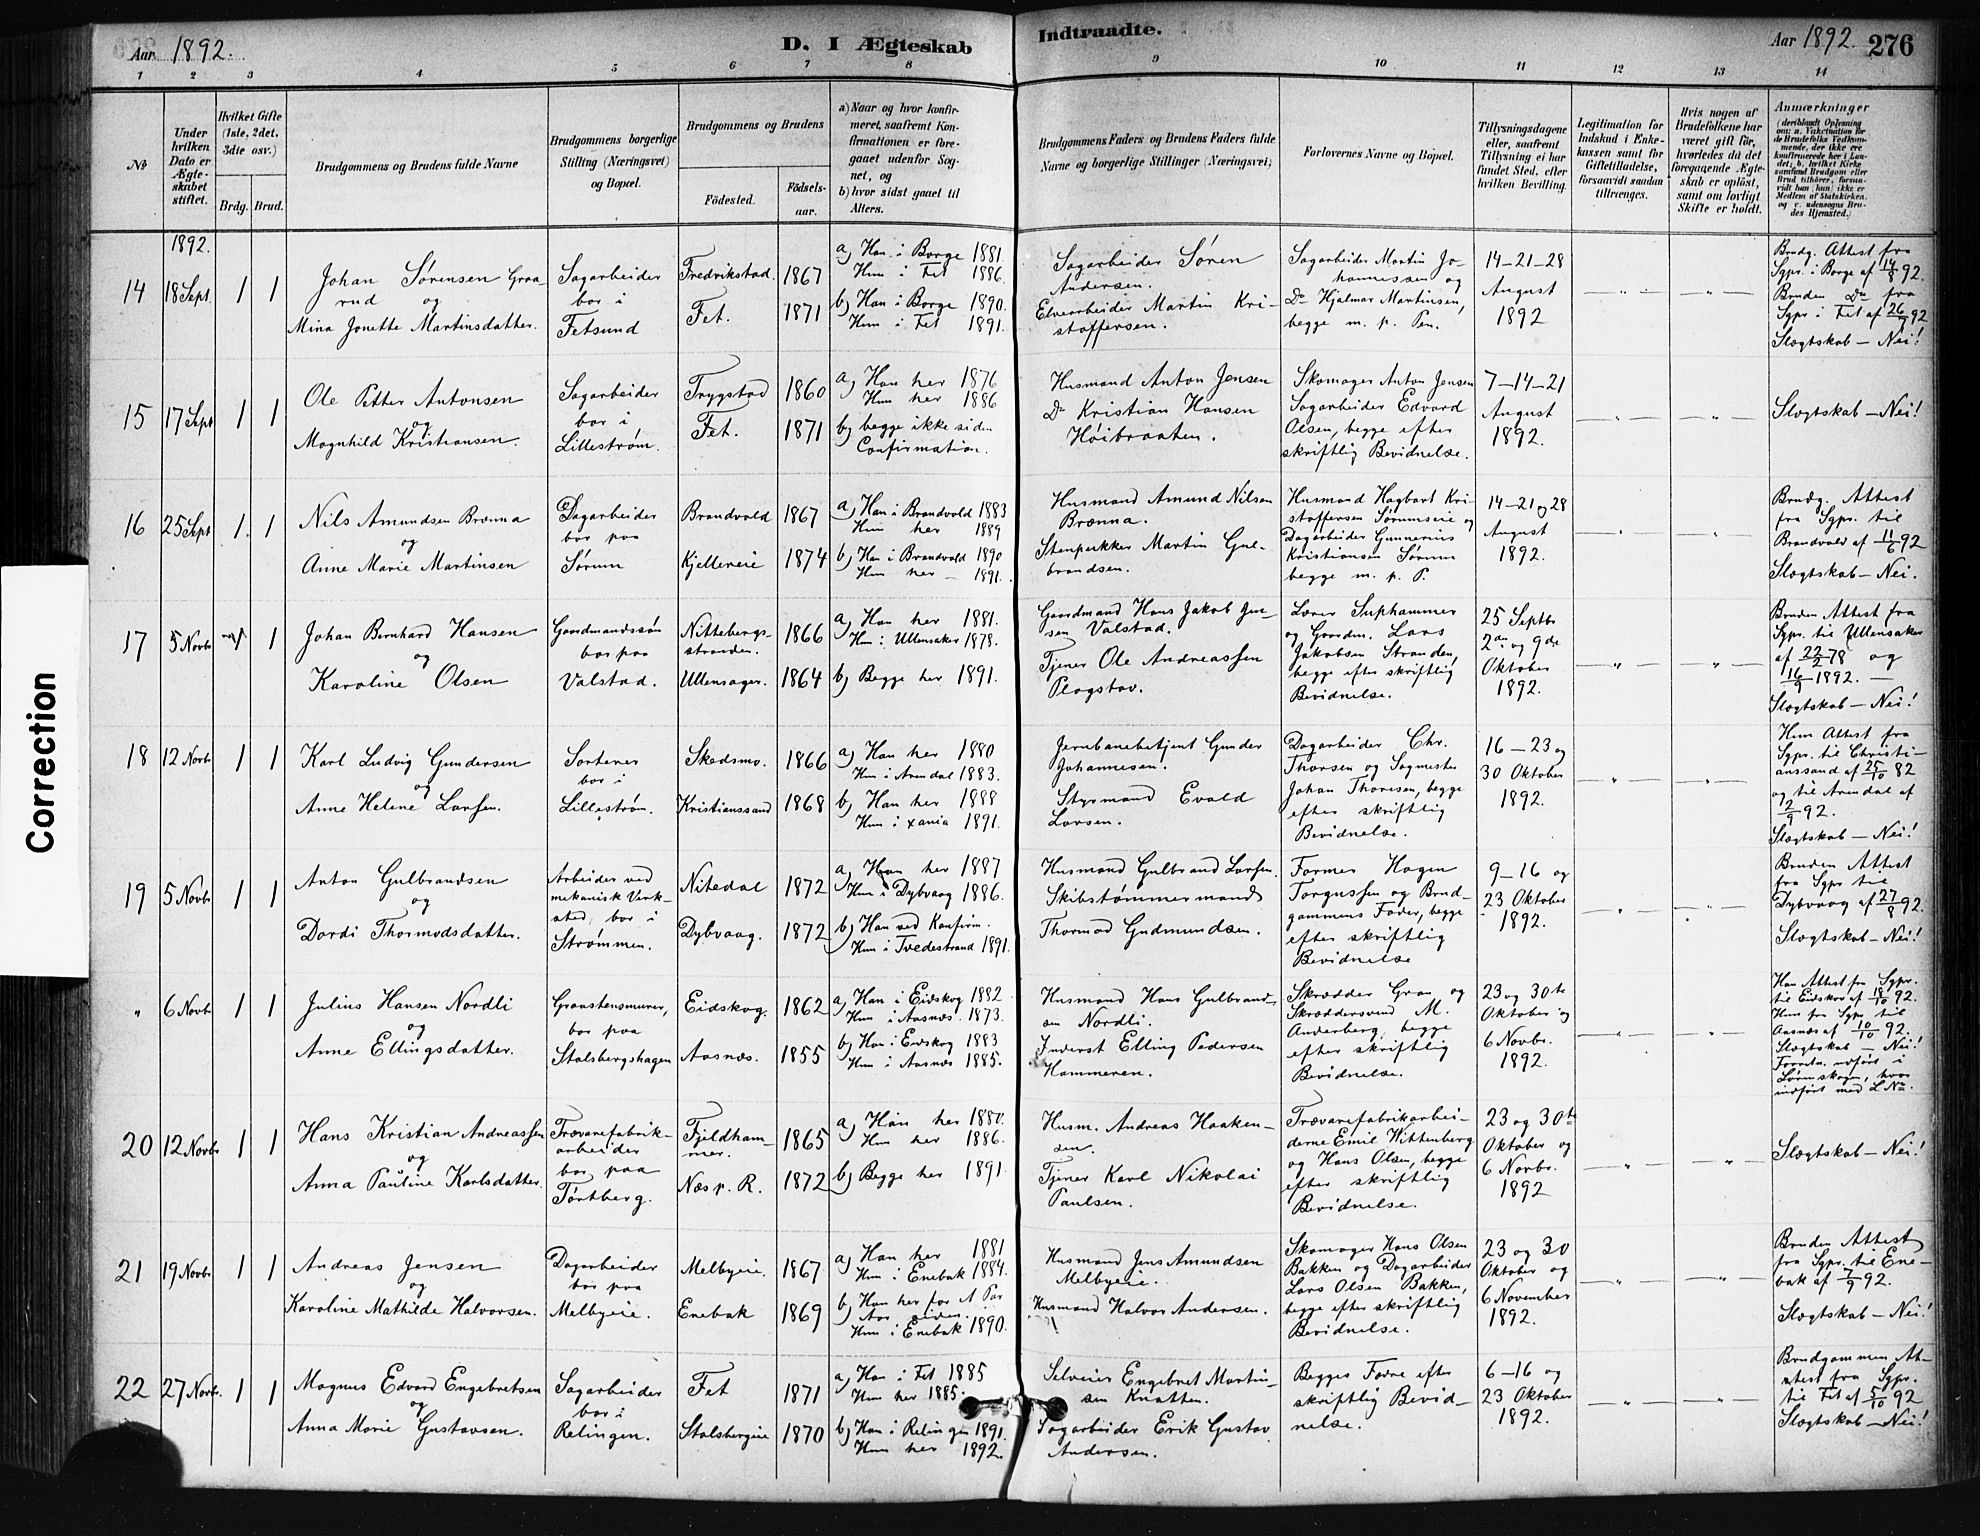 Aar 1892.
D. I Ægteskab Indtraadte.
Aar 1892. 276
1 2 3 4 5 6 7 8 9 10 11 12 13 14
№
Under hvilken Dato er Ægteskabet stiftet.
Hvilket Gifte (1ste, 2det, 3die osv.)
Brdg. Brud.
Brudgommens og Brudens fulde Navne
Brudgommens borgerlige Stilling (Næringsvei) og Bopæl.
Brudgommens og Brudens
Fødested.
Fødselsaar.
a) Naar og hvor konfirmeret, saafremt Konfirmationen er foregaaet udenfor Sognet, og
b) hvor sidst gaaet til Alters.
Brudgommens Faders og Brudens Faders fulde Navne og borgerlige Stillinger (Næringsvei)
Forlovernes Navne og Bopæl.
Tillysningsdagene eller, saafremt Tillysning ei har fundet Sted, efter hvilken Bevilling.
Legitimation for Indskud i Enkekassen samt for Giftetilladelse, forsaavidt saadan tiltrænges.
Hvis nogen af Brudefolkene har været gift før, hvorledes da det foregaaende Ægteskab er opløst, samt om lovligt Skifte er holdt.
Anmærkninger
(deriblandt Oplysning om: a. Vakcination for de Brudefolks Vedkommende, der ikke ere konfirmerede her i Landet; b. hvilket Kirkesamfund Brudgom eller Brud tilhører, forsaavidt han (hun) ikke er Medlem af Statskirken, og c. udensogns Brudes Hjemsted.)
1892.
14 18 Sept. 1 1
Johan Sørensen Graarud
og
Mina Jonette Martinsdatter.
Sagarbeider
bor i
Fetsund
Fredrikstad. 1867
Fet. 1871
a) Han i Borge 1881.
Hun i Fet 1886.
b) Han i Borge 1890.
Hun i Fet 1891.
Sagarbeider Søren
Andersen.
Elvearbeider Martin Kri-
stoffersen.
Sagarbeider Martin Jo-
hannessen og
Do Hjalmar Martinsen,
begge m. p. Pen.
14–21–28
August
1892
Brudg. Attest fra
Sgpr. i Borge af 14/8 92.
Bruden Do fra
Sgpr. i Fet af 26/7 92
Slægtskab – Nei!
15 17 Sept 1 1
Ole Petter Antonsen
og
Magnhild Kristiansen.
Sagarbeider
bor i
Lillestrøm.
Trygstad 1860
Fet. 1871
a) Han her 1876
Hun her 1886
b) begge ikke siden
Confirmation.
Husmand Anton Jensen
Do Kristian Hansen
Høibraaten.
Skomager Anton Jensen
Sagarbeider Edvard
Olsen, begge efter
skriftlig Bevidnelse.
7–14–21
August
1892.
Slægtskab – Nei!
16 25 Sept 1. 1
Nils Amundsen Brænna
og
Anne Marie Martinsen
Dagarbeider
bor paa
Sørum
Brandvold 1867
Kjellereie 1874
a) Han i Brandvold 1883
Hun her 1889
b) Han i Brandvold 1890
Hun her – 1891.
Husmand Amund Nilsen
Brænna.
Stenpukker Martin Gul-
brandsen.
Husmand Hagbart Kri-
stoffersen Sørumseie og
Dagarbeider Gunnerius
Kristiansen Sørum
begge m. p. P.
14–21 og 28
August
1892.
Brudg. Attest
fra Sgpr. til
Brandvold af 11/6 92
Slægtskab – Nei.
17 5 Novbr 1
Johan Bernhard Hansen
og
Karoline Olsen
Gaardmandssøn
bor paa
Valstad.
Nittebergs-
stranden. 1866
Ullensager. 1864
a) Han her 1881.
Hun i Ullensaker 1878.
b) Begge her 1891.
Gaardmand Hans Jakob Jen-
sen Valstad.
Tjener Ole Andreassen
Plogstav.
Lærer Suphammer
og Gaardm. Lars
Jakobsen Stranden,
begge efter skriftlig
Bevidnelse.
25 Septbr
2den og 9de
Oktober
1892.
Bruden Attest fra
Sgpr. til Ullensaker
af 22/2 78 og
16/9 1892. –
Slægtskab – Nei!
18 12 Novbr 1 1
Karl Ludvig Gundersen
og
Anne Helene Larsen.
Sorterer
bor i
Lillestrøm.
Skedsmo. 1866
Kristianssand 1868
a) Han her 1880
Hun i Arendal 1883.
b) Han her 1888
Hun i Xania 1891.
Jernbanebetjent Gunder
Johannesen.
Styrmand Evald
Larsen.
Dagarbeider Chr.
Thorsen og Sagmester
Johan Thoresen, begge
efter skriftlig
Bevidnelse.
16–23 og
30 Oktober
1892.
Hun Attest fra
Sgpr. til Christi-
anssand af 25/10 82
og til Arendal af
2/9 92.
Slægtskab – Nei!
19 5 Novbr 1 1
Anton Gulbrandsen
og
Dordi Thormodsdatter.
Arbeider ved
mekanisk Verk-
sted, bor i
Strømmen.
Nitedal 1872
Dybvaag. 1872
a) Han her 1887
Hun i Dybvaag 1886.
b) Han ved Konfirm.
Hun i Tvedestrand 1891.
Husmand Gulbrand Larsen.
Skibstømmermand
Thormod Gudmundsen.
Former Hagen
Torgussen og Brud-
gommens Fader, begge
efter skriftlig
Bevidnelse
9–16 og
23 Oktober
1892.
Bruden Attest
fra Sgpr til
Dybvaag af 27/8 92.
Slægtskab – Nei!
" 6 Novbr 1 1
Julius Hansen Nordli
og
Anne Ellingsdatter.
Graastensmurer,
bor paa
Stalsbergshagen
Eidskog. 1862
Aasnæs. 1855
a) Han i Eidskog 1882
Hun i Aasnæs. 1873.
b) Han i Eidskog 1883
Hun i Aasnæs 1885.
Husmand Hans Gulbrand-
sen Nordli.
Inderst Elling Pedersen
Hammeren.
Skrædder Gran og
Skræddersvend M.
Anderberg, begge
efter skriftlig
Bevidnelse.
23 og 30te
Oktober og
6 Novbr.
1892.
Han Attest fra Sgpr.
til Eidskog af 18/10 92.
Hun fra Sgpr til
Aasnæs af 10/10 92.
Slægtskab – Nei!
Forretn. udført i
Lørenskogen, hvor
indført med L No.
20 12 Novbr 1 1
Hans Kristian Andreassen
og
Anna Pauline Karlsdatter.
Trævarefabrik-
arbeider
bor paa
Tørtberg.
Fjeldham-
mer. 1865
Næs p. R. 1872
a) Han her 1880.
Hun her 1886.
b) Begge her 1891
Husm. Andreas Haaken-
sen.
Tjener Karl Nikolai
Paulsen.
Trævarefabrikarbei-
derne Emil Wittenberg
og Hans Olsen, begge
efter skriftlig
Bevidnelse.
23 og 30te
Oktober og
6 Novbr.
1892
Slægtskab – Nei!
21 19 Novbr 1 1
Andreas Jensen
og
Karoline Mathilde Halvorsen.
Dagarbeider
bor paa
Melbyeie.
Melbyeie. 1867
Enebak 1869
a) Han her 1881
Hun i Enebak 1884.
b) Han her for 1 Par
Aar siden.
Hun i Enebak 1890.
Husmand Jens Amundsen
Melbyeie.
Husmand Halvor Andersen.
Skomager Hans Olsen
Bakken og Dagarbeider
Lars Olsen Bakken,
begge efter skriftlig
Bevidnelse.
23 og 30
Oktober og
6 November
1892.
Bruden Attest
fra Sgpr. til Ene-
bak af 7/9 92.
Slægtskab – Nei!
22 27 Novbr. 1 1
Magnus Edvard Engebretsen
og
Anna Marie Gustavsen.
Sagarbeider
bor i
Relingen.
Fet 1871
Stalsbergeie 1870
a) Han i Fet 1885
Hun her 1885.
b) Han i Relingen 1891.
Hun her 1892.
Selveier Engebret Martin-
sen Knatten.
Sagarbeider Erik Gustav
Andersen.
Begges Fædre efter
skriftlig Bevid-
nelse.
6–16 og
23 Oktober
1892.
Brudgommen At-
test fra Sgpr.
til Fet af 5/10 92
Slægtskab – Nei!
Correction